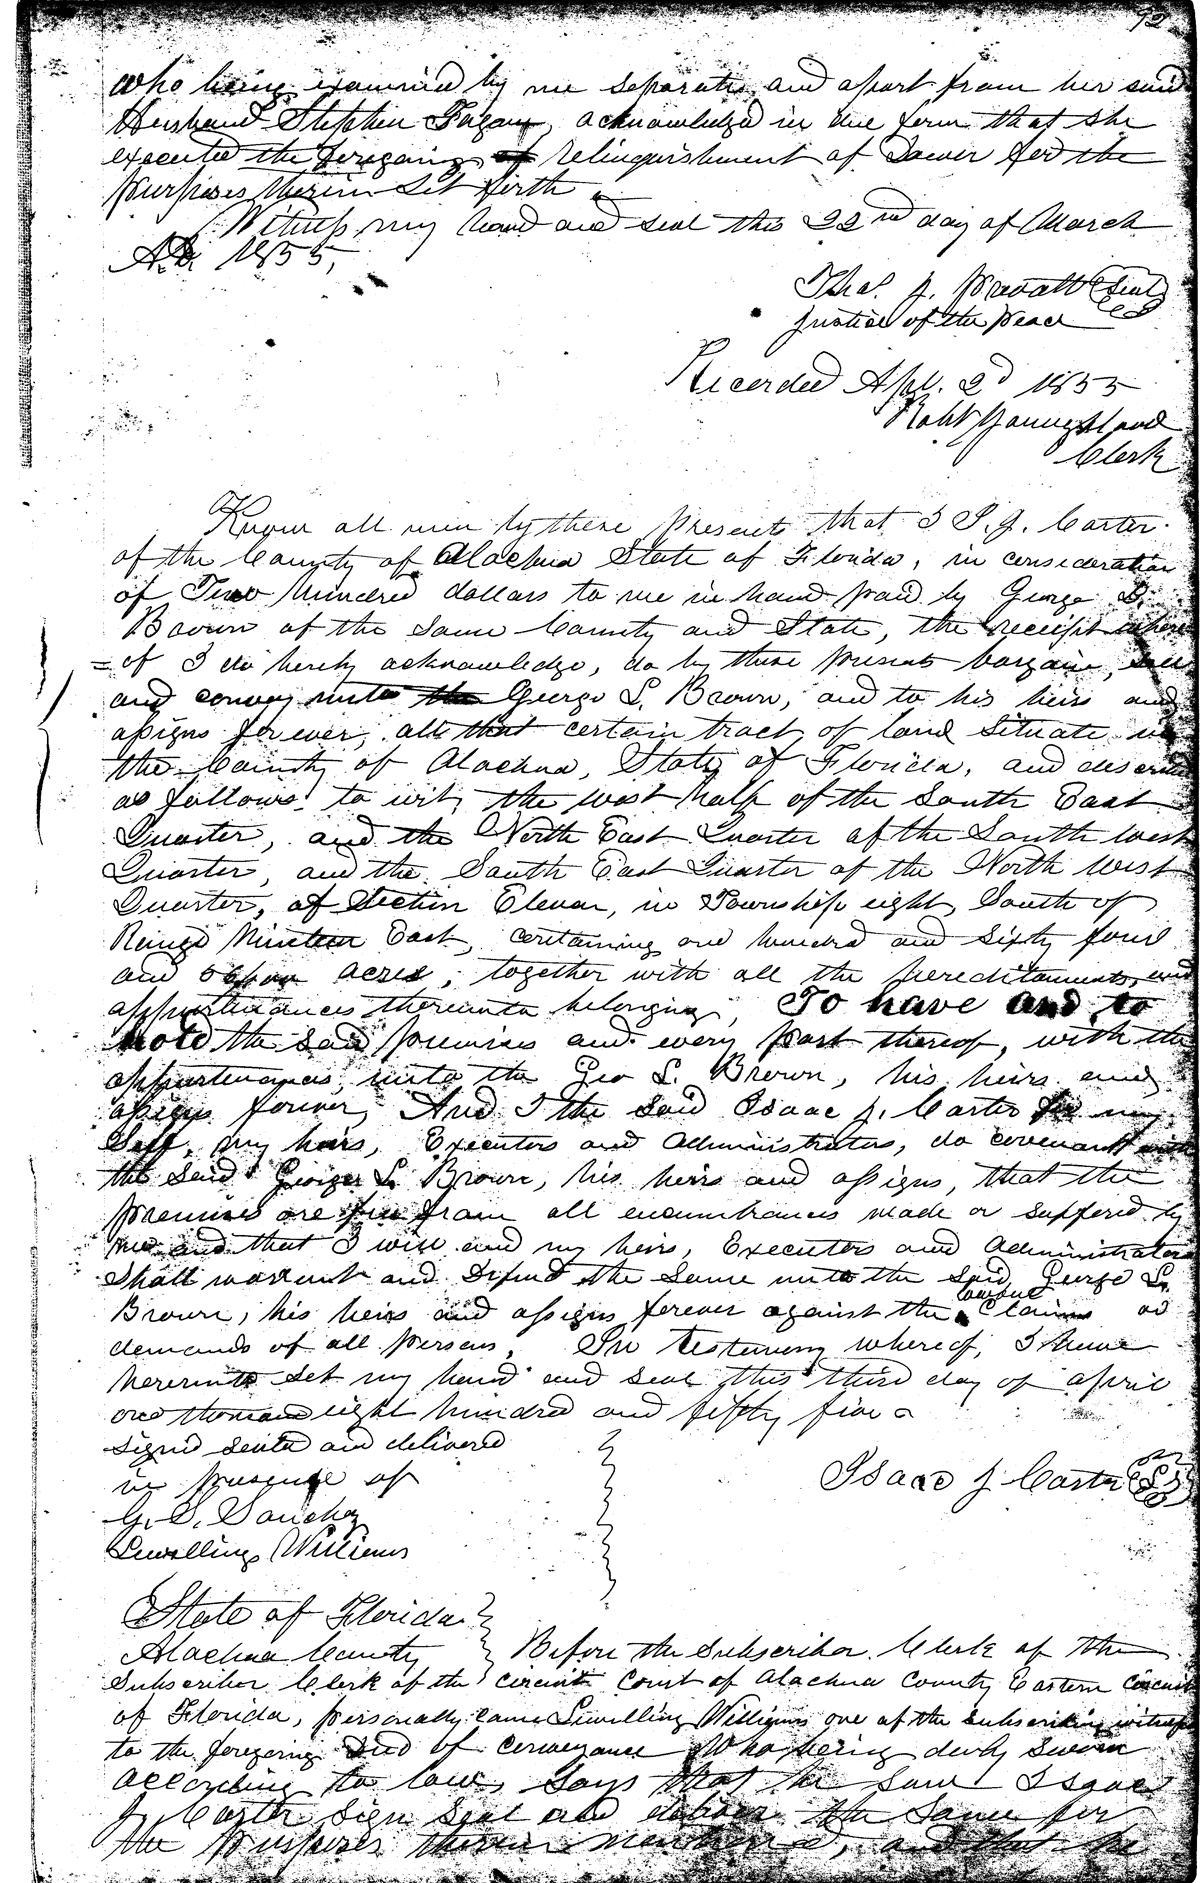 92
who being examined by me separate and apart from her said
Husband Stephen Fagan, acknowledged in due form that she
executed the foregoing of relinquishment of Dower for the
purposes therein set forth
Witness my hand and seal this 22nd day of March
A.D. 1855,
Thos. J. Prevatt Seal
Justice of the Peace
Recorded Apl. 2d 1855
Robt Youngblood
Clerk
Know all men by these presents that I I. J. Carter
of the County of Alachua State of Florida, in consideration
of Two hundred dollars to me in hand paid by George L.
Brown of the same County and State, the receipt where
=of I do hereby acknowledge, do by these presents bargain, sell
and convey unto the George L. Brown, and to his heirs and
assigns forever, all that certain tract of land situate in
the County of Alachua, State of Florida, and described
as follows to wit, the west half of the South East
Quarter, and the North East Quarter of the South west
Quarter, and the South East Quarter of the North West
Quarter, of Section Eleven, in Township eight South of
Range Nineteen East, containing one hundred and sixty four
and acres, together with all the hereditaments, and
appurtenances thereunto belonging, To have and to
hold the said premises and every part thereof, with the
appurtenances, unto the Geo L. Brown, his heirs and
assigns forever, And I the said Isaac J. Carter for my
Self, my heirs, Executors and administrators, do covenant with
the said George L. Brown, his heirs and assigns, that the
premises are free from all encumbrances made or suffered by
me and that I will and my heirs, Executors and administrators
shall warrant and defend the same unto the said George L.
Brown, his heirs and assigns forever against the lawful claims or
demands of all persons, In testimony whereof, I have
hereunto set my hand and seal this third day of april
one thousand eight hundred and fifty five
signed sealed and delivered
in presence of
Isaac J Carter L S
G. S. Sanchez
Lewelling Williams
State of Florida
Alachua County Before the Subscriber Clerk of the
Subscriber Clerk of the circuit Court of Alachua County Eastern Circuit
of Florida, personally came Lewelling Williams one of the subscribing witness
to the foregoing Deed of conveyance Who being duly sworn
according to law, says that he saw Isaac
J. Carter sign seal and deliver the same for
the purposes therein mentioned, and that he